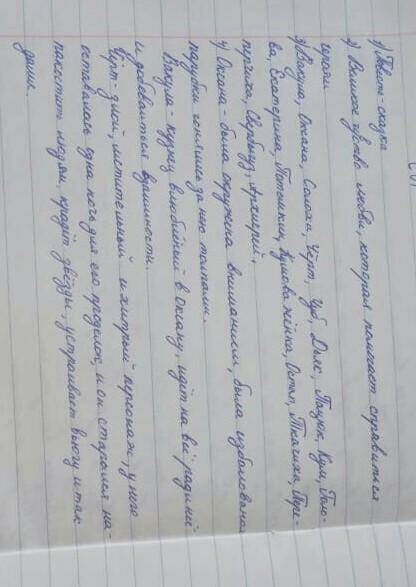 1) Повесть-сказка
2) Великое чувство любви, которая помогает справиться
3) Вакула, Оксана, Солоха, Чёрт, Чуб, Дьяк, Пацюк, Кум, Голо-
ва, Екатерина, Потёмкин, Кумова жінка, Остап, Ткачиха, Пере-
перчиха, Свербыгуз, Архиерей.
4) Оксана - была окружена вниманием, была избалована
парубки гонялись за нею толпами.
Вакула - кузнец влюблённый в Оксану, идёт на всё ради неё
и добиваться взаимности.
Чёрт - злой, мстительный и хитрый персонаж, у него
оставалась одна ночь для его проделок, и он старался на-
пакостить людям, крадёт звёзды, устраивает вьюгу и так
далее.